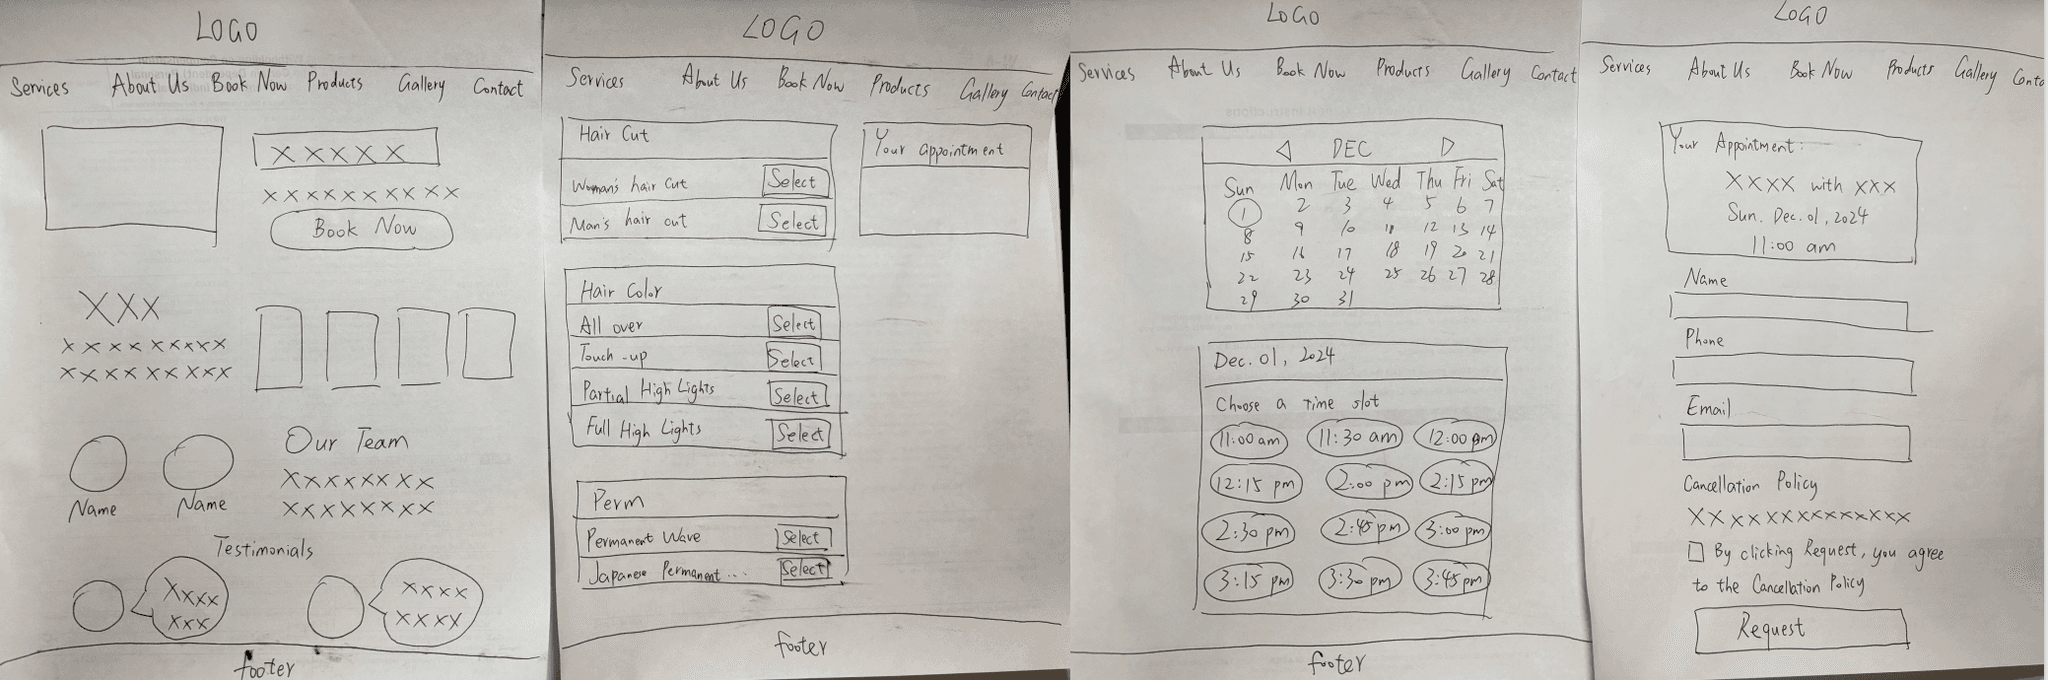 LOGO
Services About Us Book Now Products Gallery Contact
X X X X X
X X X X X X X X X
Book Now
XXX
X X X X X X X X X
X X X X X X X X X
Our Team
X X X X X X X X
X X X X X X X X
Name Name
Testimonials
XXXX
XXX
XXXX
XXXX
footer
LOGO
Services About Us Book Now Products Gallery Contact
Hair Cut
Woman's hair cut Select
Man's hair cut Select
Your appointment
Hair Color
All over Select
Touch-up Select
Partial High Lights Select
Full High Lights Select
Perm
Permanent Wave Select
Japanese Permanent... Select
footer
LOGO
Services About Us Book Now Products Gallery Contact
DEC
Sun Mon Tue Wed Thu Fri Sat
1 2 3 4 5 6 7
8 9 10 11 12 13 14
15 16 17 18 19 20 21
22 23 24 25 26 27 28
29 30 31
Dec. 01, 2024
Choose a Time slot
11:00 am 11:30 am 12:00 pm
12:15 pm 2:00 pm 2:15 pm
2:30 pm 2:45 pm 3:00 pm
3:15 pm 3:30 pm 3:45 pm
footer
LOGO
Services About Us Book Now Products Gallery Conta
Your Appointment:
XXXX with XXX
Sun. Dec. 01, 2024
11:00 am
Name
Phone
Email
Cancellation Policy
XXXXXXXXXXXXX
By clicking Request, you agree
to the Cancellation Policy
Request